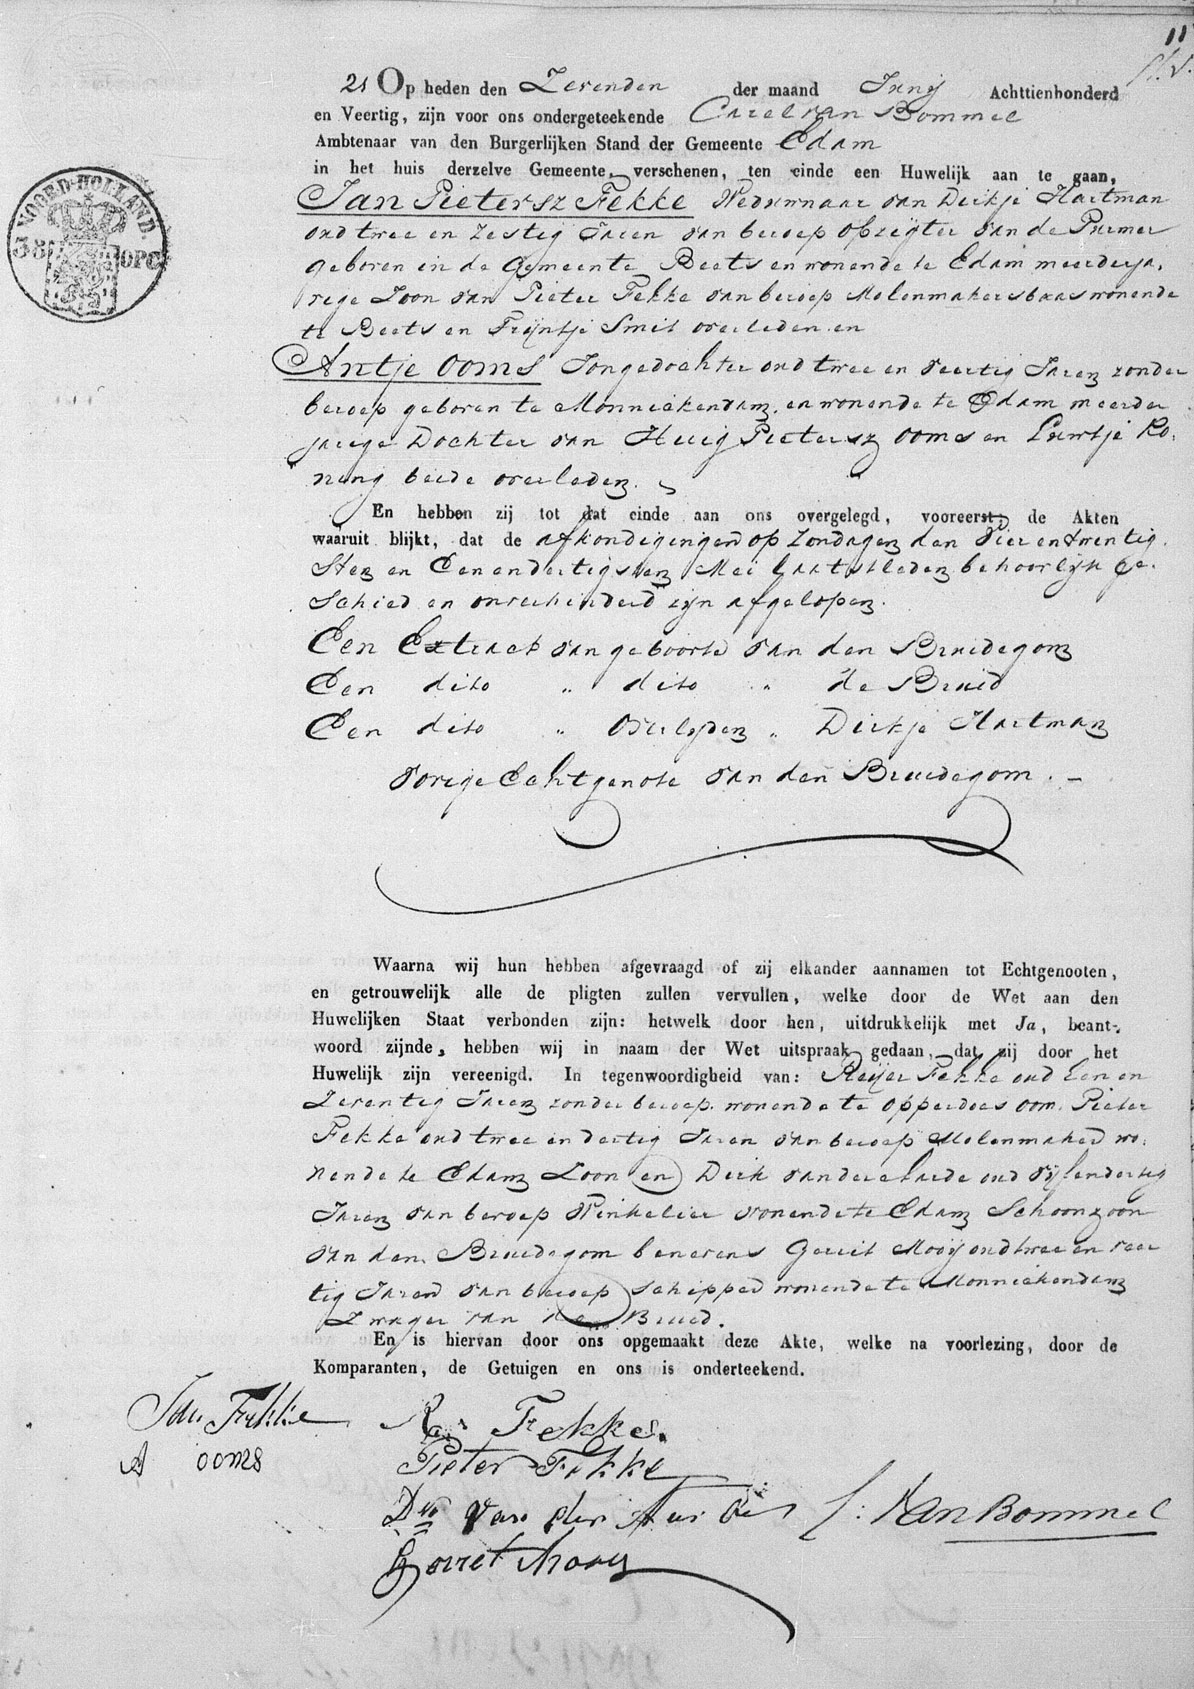 11
21 Op heden den Zevenden der maand Junij Achttienhonderd
en Veertig, zijn voor ons ondergeteekende Carel van Bommel
Ambtenaar van den Burgerlijken Stand der Gemeente Edam
in het huis derzelve Gemeente, verschenen, ten einde een Huwelijk aan te gaan,
Jan Pietersz Fekke Weduwnaar van Dirkje Hartman
oud twee en Zestig Jaren van beroep Opzigter van de Purmer
geboren in de Gemeente Beets en wonende te Edam meerderja,
rige Zoon van Pieter Fekke van beroep Molenmakersbaas wonende
te Beets en Trijntje Smit overleden en
Antje Ooms Jongedochter oud twee en veertig Jaren zonder
beroep geboren te Monnickendam en wonende te Edam meerder
jarige Dochter van Huig Pietersz Ooms en Luwtje Ko,
ning beide overleden.
En hebben zij tot dat einde aan ons overgelegd, vooreerst, de Akten
waaruit blijkt, dat de afkondigingen op Zondagen den Vier en twintig
sten en Een en dertigsten Mei laatstleden behoorlijk ge-
schied en onverhinderd zijn afgelopen.
Een Extract van geboorte van den Bruidegom
Een dito " dito " de Bruid
Een dito " Overlyden " Dirkje Hartman
vorige Echtgenote van den Bruidegom. -
Waarna wij hun hebben afgevraagd of zij elkander aannamen tot Echtgenooten,
en getrouwelijk alle de pligten zullen vervullen, welke door de Wet aan den
Huwelijken Staat verbonden zijn: hetwelk door hen, uitdrukkelijk met Ja, beant-
woord zijnde, hebben wij in naam der Wet uitspraak gedaan, dat zij door het
Huwelijk zijn vereenigd. In tegenwoordigheid van: Reijer Fekke oud Een en
Zeventig Jaren zonder beroep wonende te Opperdoes oom Pieter
Fekke oud twee en dertig Jaren van beroep Molenmaker wo,
nende te Edam Zoon en Dirk van der oud Vijfendertig
Jaren van beroep Winkelier wonende te Edam Schoonzoon
van den Bruidegom benevens Gerrit Mooij oud twee en veer
tig Jaren van beroep Schipper wonende te Monnickendam
Zwager van de Bruid.
En is hiervan door ons opgemaakt deze Akte, welke na voorlezing, door de
Komparanten, de Getuigen en ons is onderteekend.
Jan Fekke
A ooms
R. Fekkes.
Pieter Fekke
Dk van der
Gerret Mooy
C: Van Bommel
NOORD-HOLLAND.
38 OPC